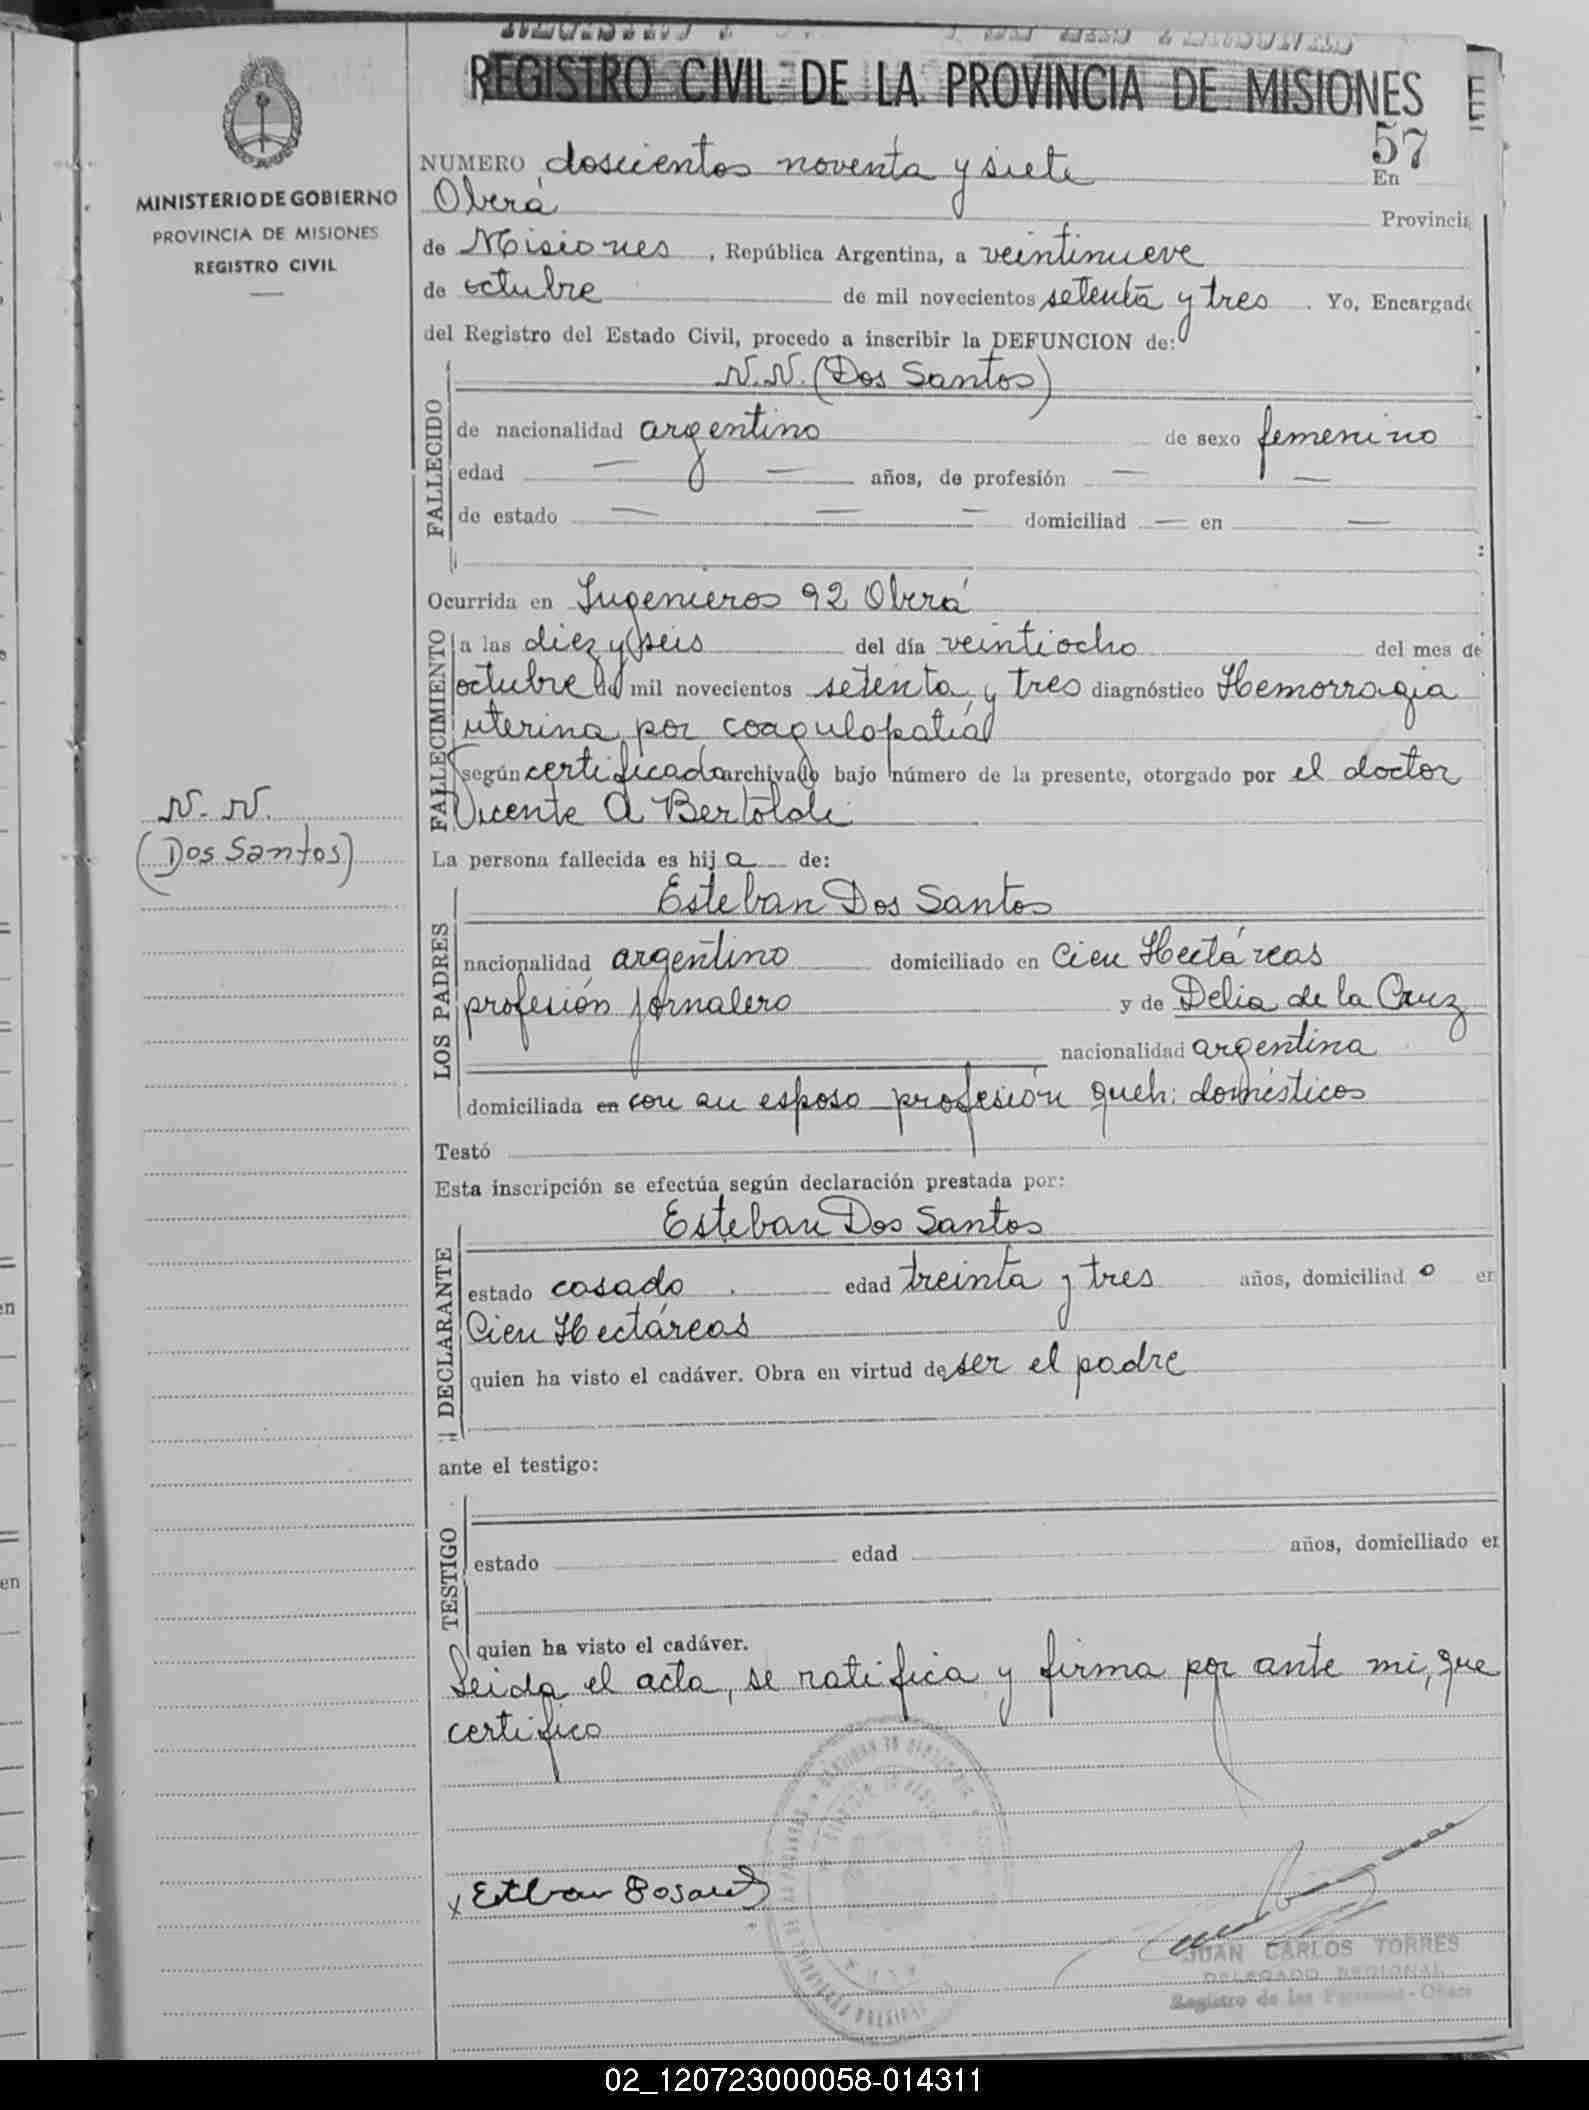 REGISTRO CIVIL DE LA PROVINCIA DE MISIONES
57
MINISTERIO DE GOBIERNO
PROVINCIA DE MISIONES
REGISTRO CIVIL
NUMERO doscientos noventa y siete En
Oberá Provincia
de Misiones, República Argentina, a veintinueve
de octubre de mil novecientos setenta y tres. Yo, Encargado
del Registro del Estado Civil, procedo a inscribir la DEFUNCION de:
N.N. (Dos Santos)
FALLECIDO
de nacionalidad argentino de sexo femenino
edad — — años, de profesión — —
de estado — — — domiciliad — en —
Ocurrida en Ingenieros 92 Oberá
FALLECIMIENTO
a las diez y seis del día veintiocho del mes de
octubre de mil novecientos setenta y tres diagnóstico Hemorragia
uterina por coagulopatía
según certificado archivado bajo número de la presente, otorgado por el doctor
Vicente A Bertoldi
N-N.
(Dos Santos)
La persona fallecida es hija de:
Esteban Dos Santos
LOS PADRES
nacionalidad argentino domiciliado en Cien Hectáreas
profesión jornalero y de Delia de la Cruz
nacionalidad argentina
domiciliada en con su esposo profesión queh: domésticos
Testó
Esta inscripción se efectúa según declaración prestada por:
Esteban Dos Santos
DECLARANTE
estado casado. edad treinta y tres años, domiciliado en
Cien Hectáreas
quien ha visto el cadáver. Obra en virtud de ser el padre
ante el testigo:
TESTIGO
estado edad años, domiciliado en
quien ha visto el cadáver.
Leida el acta, se ratifica y firma por ante mi, que
certifico
x Esteban
JUAN CARLOS TORRES
DELEGADO REGIONAL
Registro de las Personas - Oberá
02_120723000058-014311